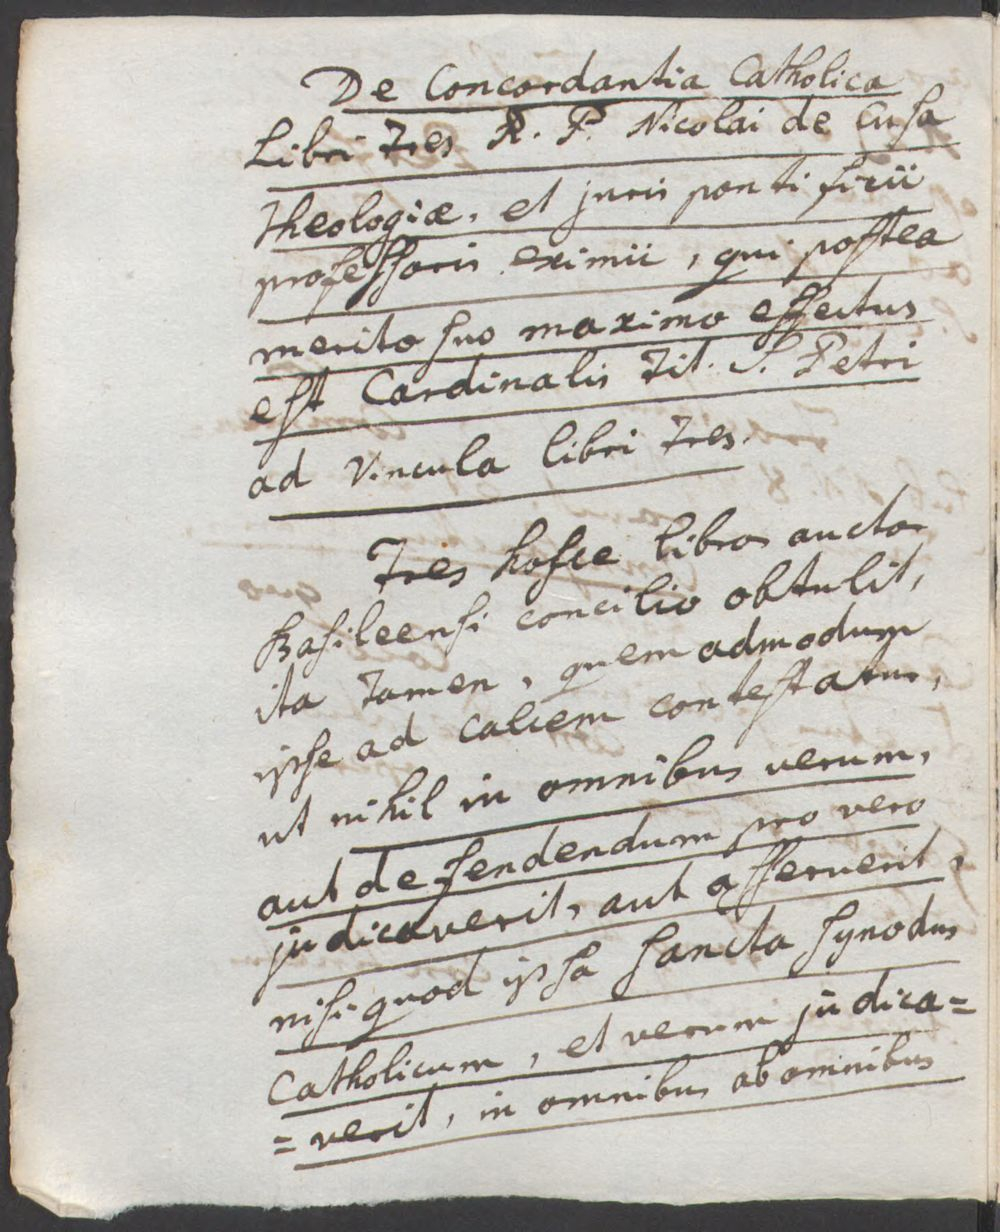 De Concordantia Catholica
Libri tres R. P. Nicolai de Cusa
Theologiæ, et juris pontificii
professoris eximii, qui postea
merito suo maximo effectus
est Cardinalis Tit. S. Petri
ad Vincula libri tres.
Tres hosce libros auctor
Basileensi concilio obtulit,
ita tamen, quemadmodum
ipse ad calcem contestatur,
ut nihil in omnibus verum,
aut defendendum pro vero
judicaverit, aut asseruerit,
nisi quod ipsa sancta synodus
Catholicum, et verum judica=
=verit, in omnibus ab omnibus